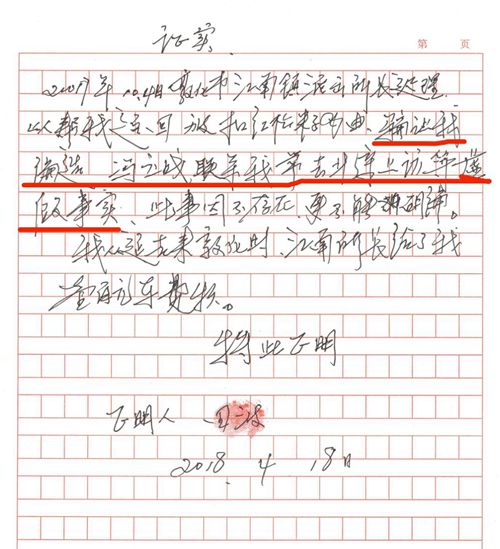 证实
第 页
2017年10.4日敦化市江南镇派出所长处理
以帮我追回被扣红松籽为由,编让我
编造冯立成联系我等去北京上访等虚
假事实,此事因不存在,更不能
我从延吉来敦化时,江南所长给了我
壹百元车费钱。
特此证明
证明人
2018.4.18日